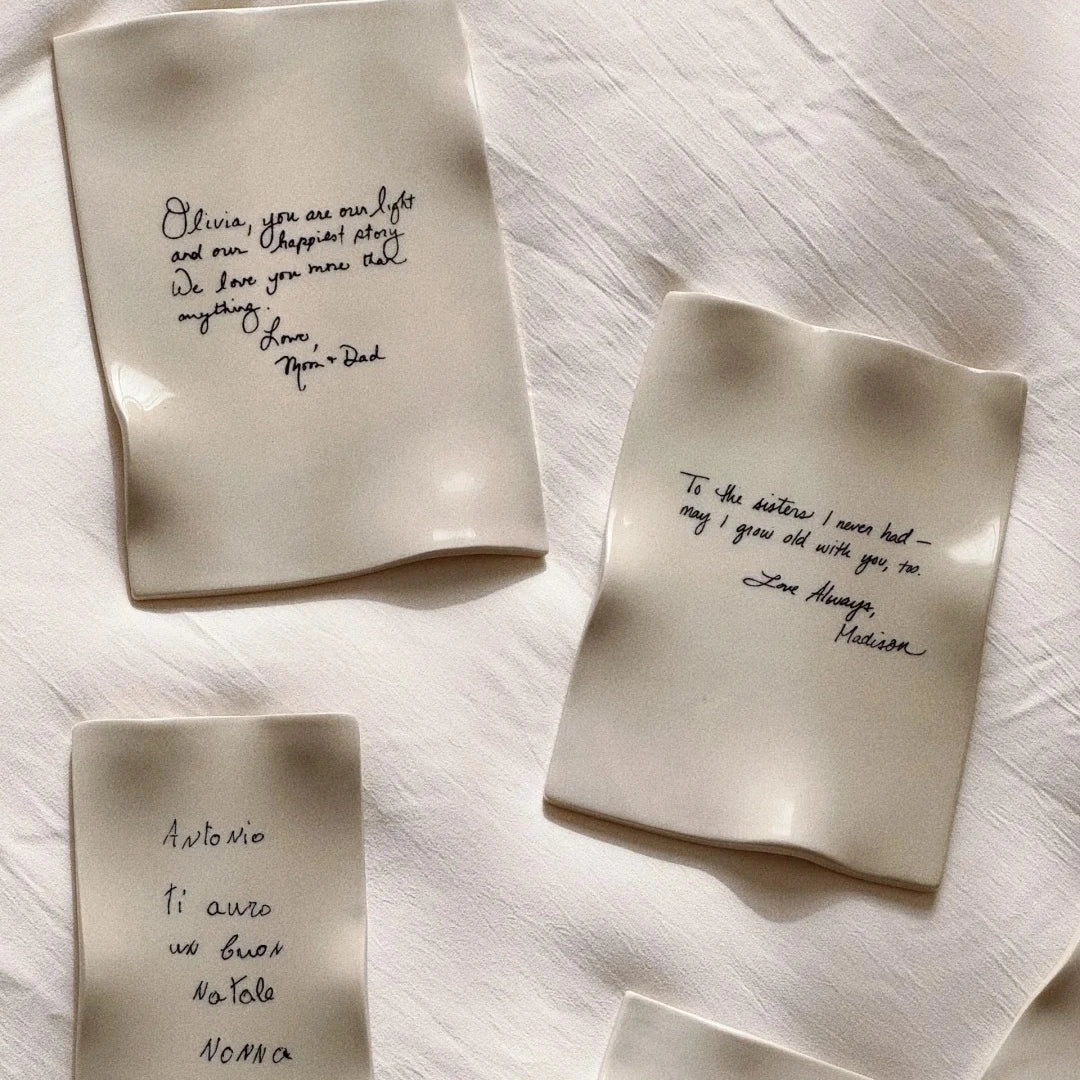 Olivia, you are our light
and our happiest story
We love you more than
anything.
Love,
Mom + Dad
To the sisters I never had —
may I grow old with you, too.
Love Always,
Madison
Antonio
ti auro
un buon
Natale
NONNa